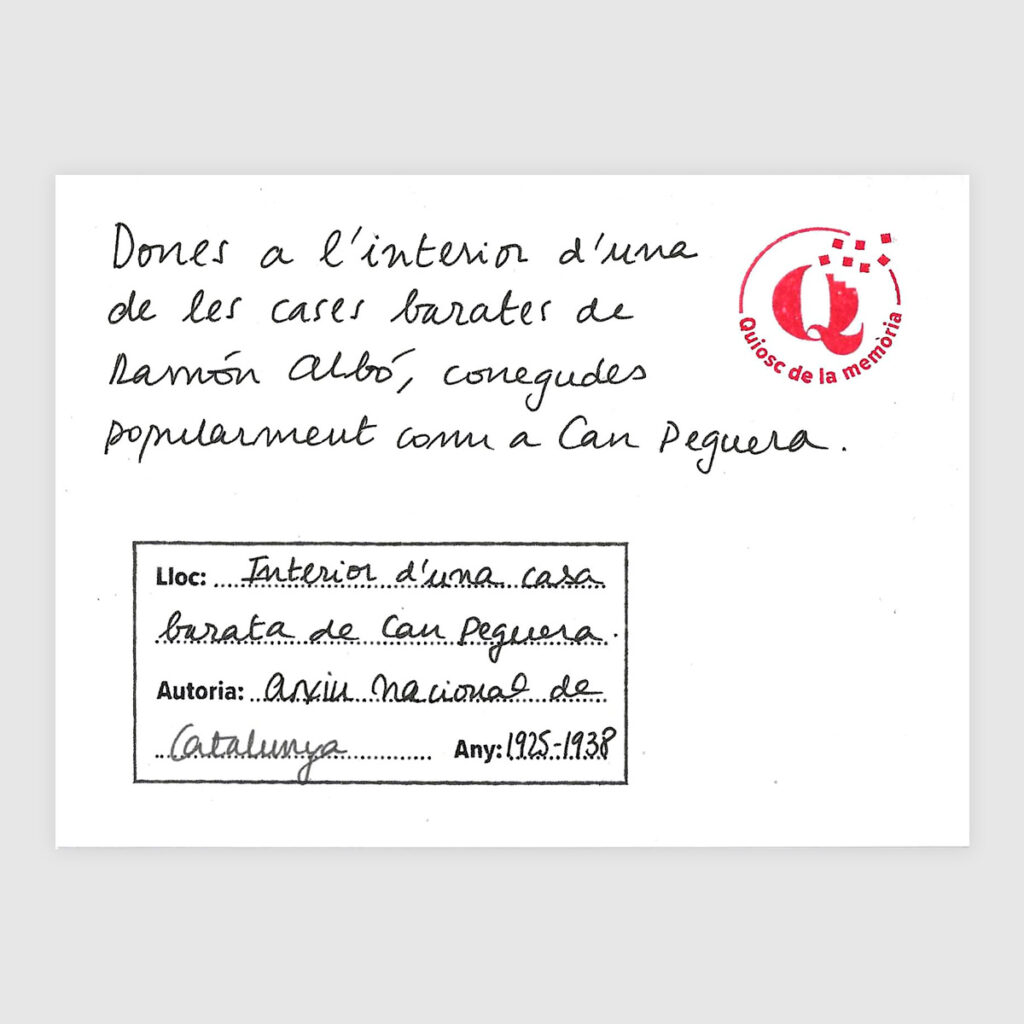 Dones a l'interior d'una
de les cases barates de
Ramón Albó, conegudes
popularment com a Can Peguera.
Quiosc de la memòria
Lloc: Interior d'una casa
barata de Can Peguera.
Autoria: Arxiu Nacional de
Catalunya Any: 1925-1938